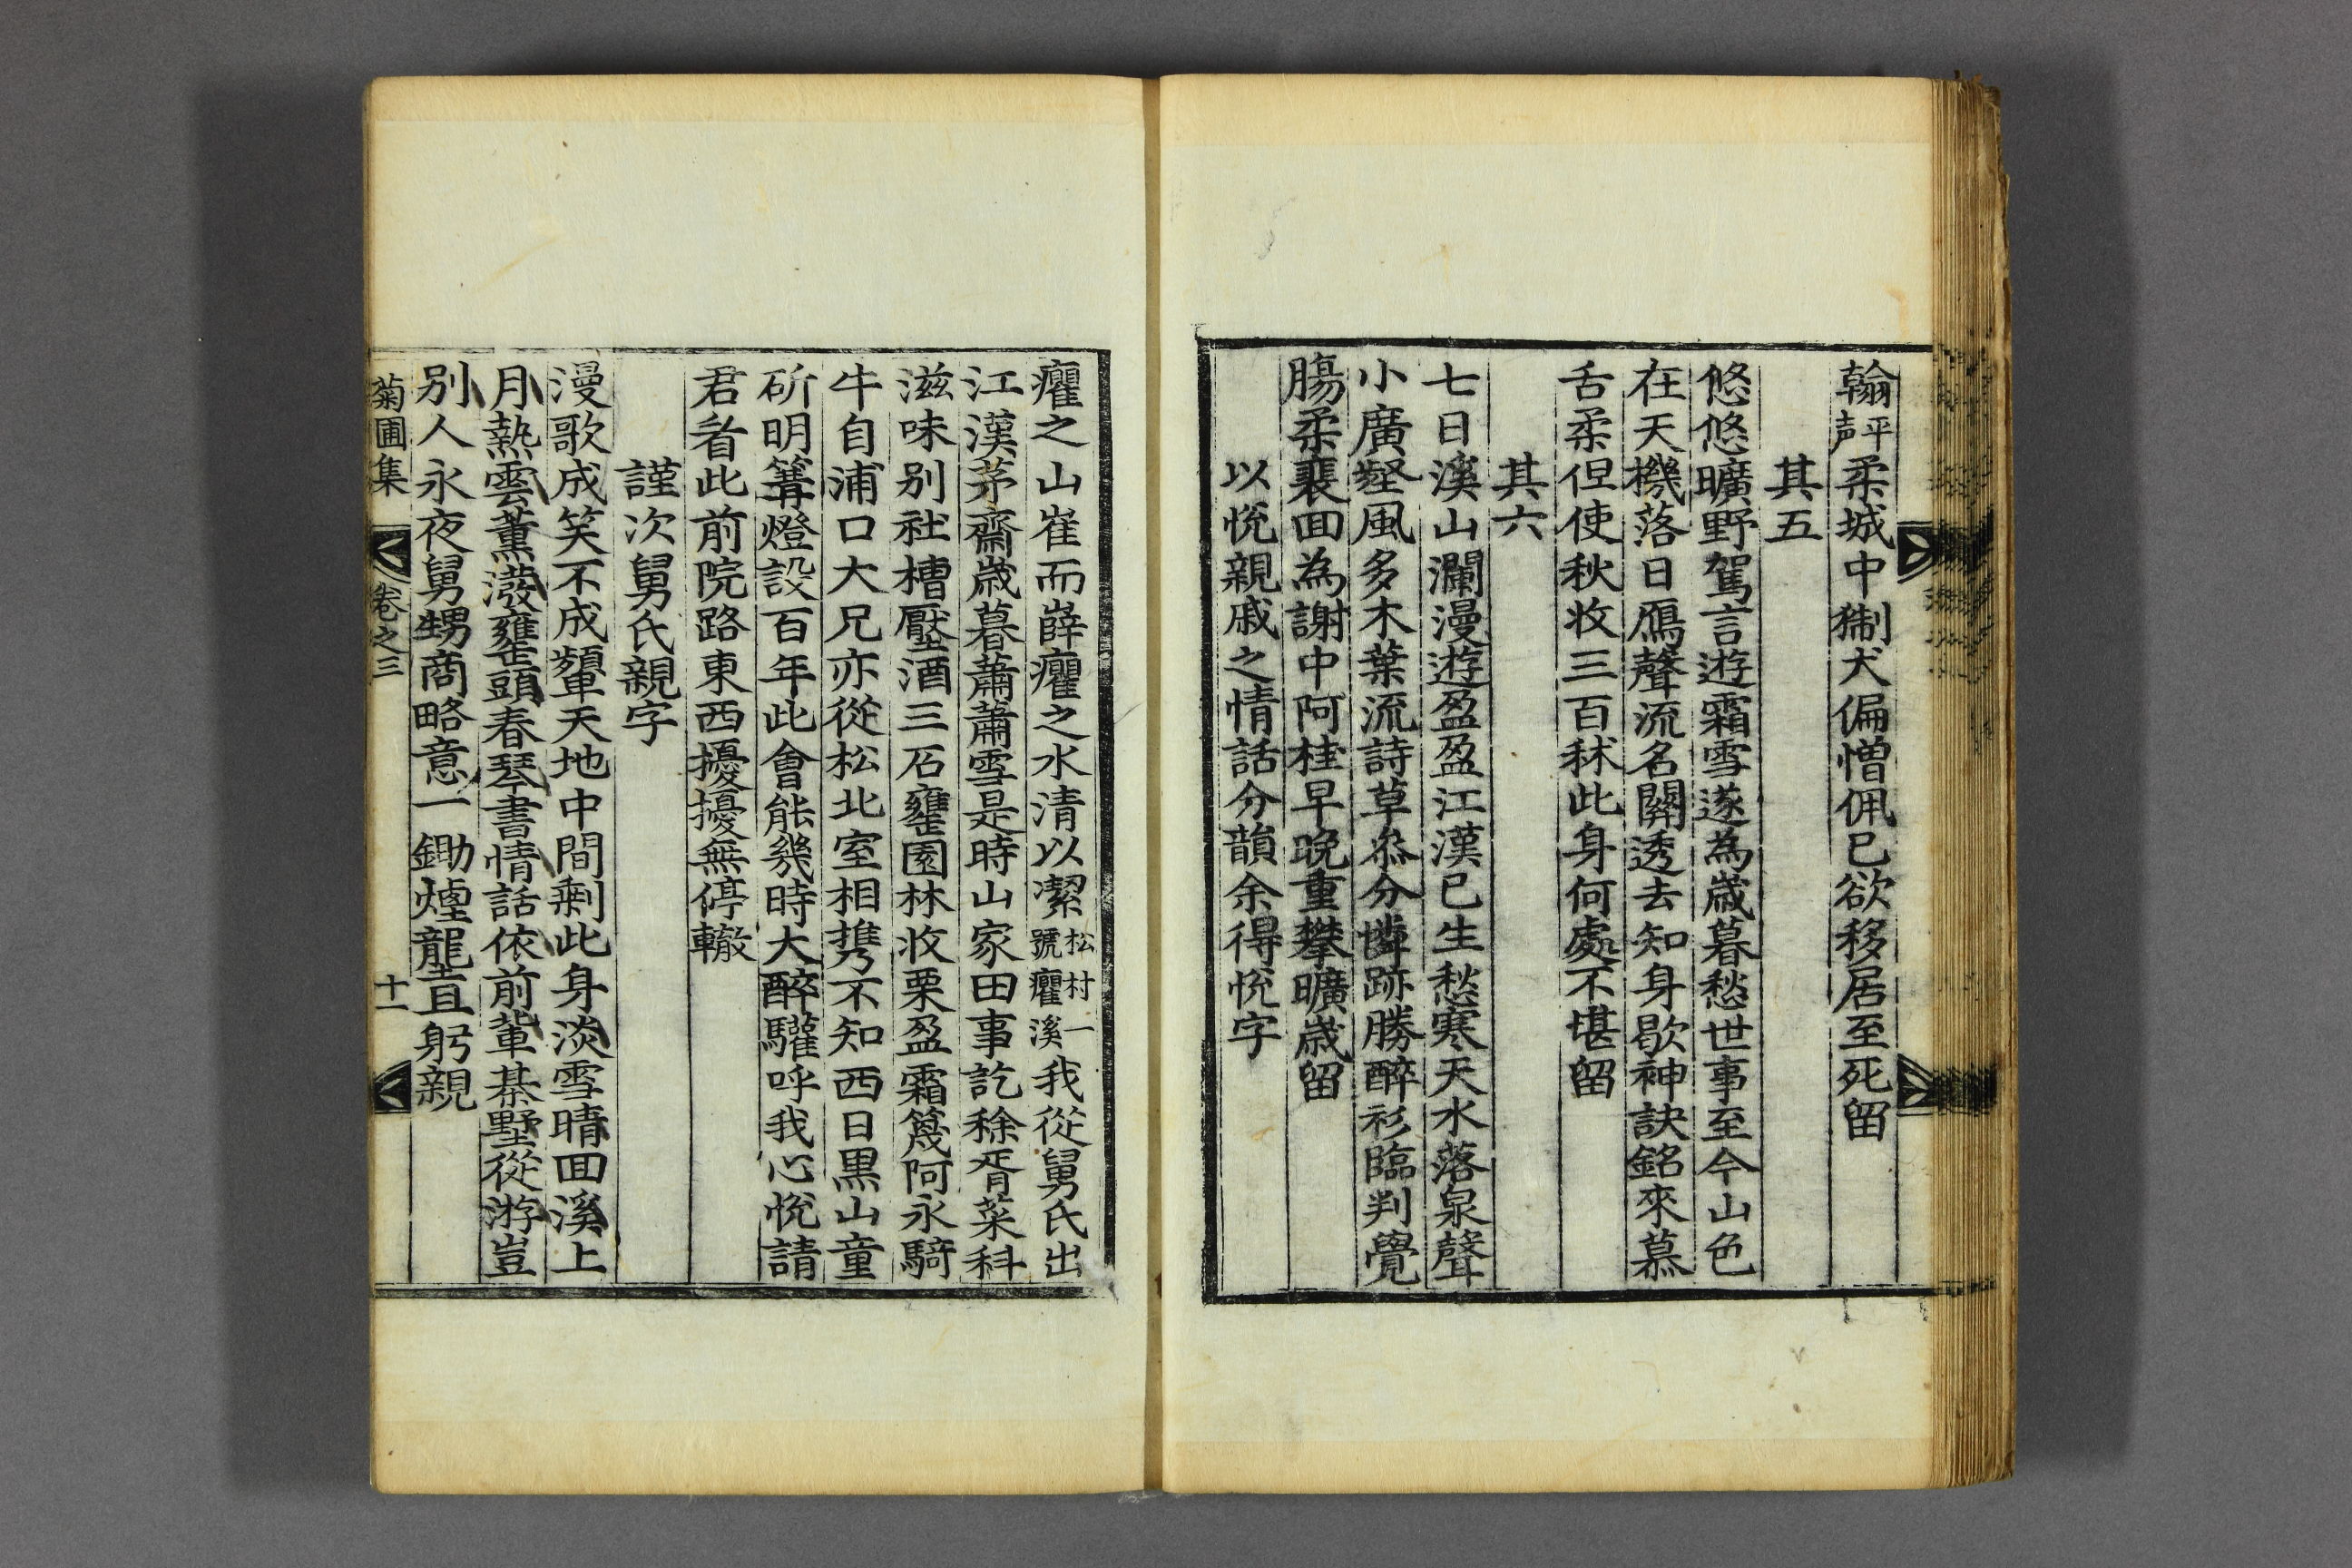 翰聲柔城中猘犬偏憎佩已欲移居至死留
其五
悠悠曠野駕言遊霜雪遂為歲暮愁世事至今山色
在天機落日鴈聲流名關透去知身歇神訣銘來慕
舌柔但使秋收三百秫此身何處不堪留
其六
七日溪山瀾漫遊盈盈江漢已生愁寒天水落泉聲
小廣壑風多木葉流詩草叅分憐跡勝醉衫臨判覺
腸柔裵回為謝中阿桂早晚重攀曠歲留
以悅親戚之情話分韻余得悅字
癯之山崔而嶭癯之水清以潔松村一號癯溪我從舅氏出
江漢茅齋歲暮蕭蕭雪是時山家田事訖稌胥菜科
滋味別社槽壓酒三石甕園林收栗盈霜篾阿永騎
牛自浦口大兄亦從松北室相携不知西日黑山童
斫明篝燈設百年此會能幾時大醉驩呼我心悅請
君看此前院路東西擾擾無停轍
謹次舅氏親字
漫歌成笑不成顰天地中間剩此身淡雪晴回溪上
月熱雲薰潑甕頭春琴書情話依前輩棊墅從游豈
別人永夜舅甥商略意一鋤煙壟且躬親
菊圃集 卷之三 十一